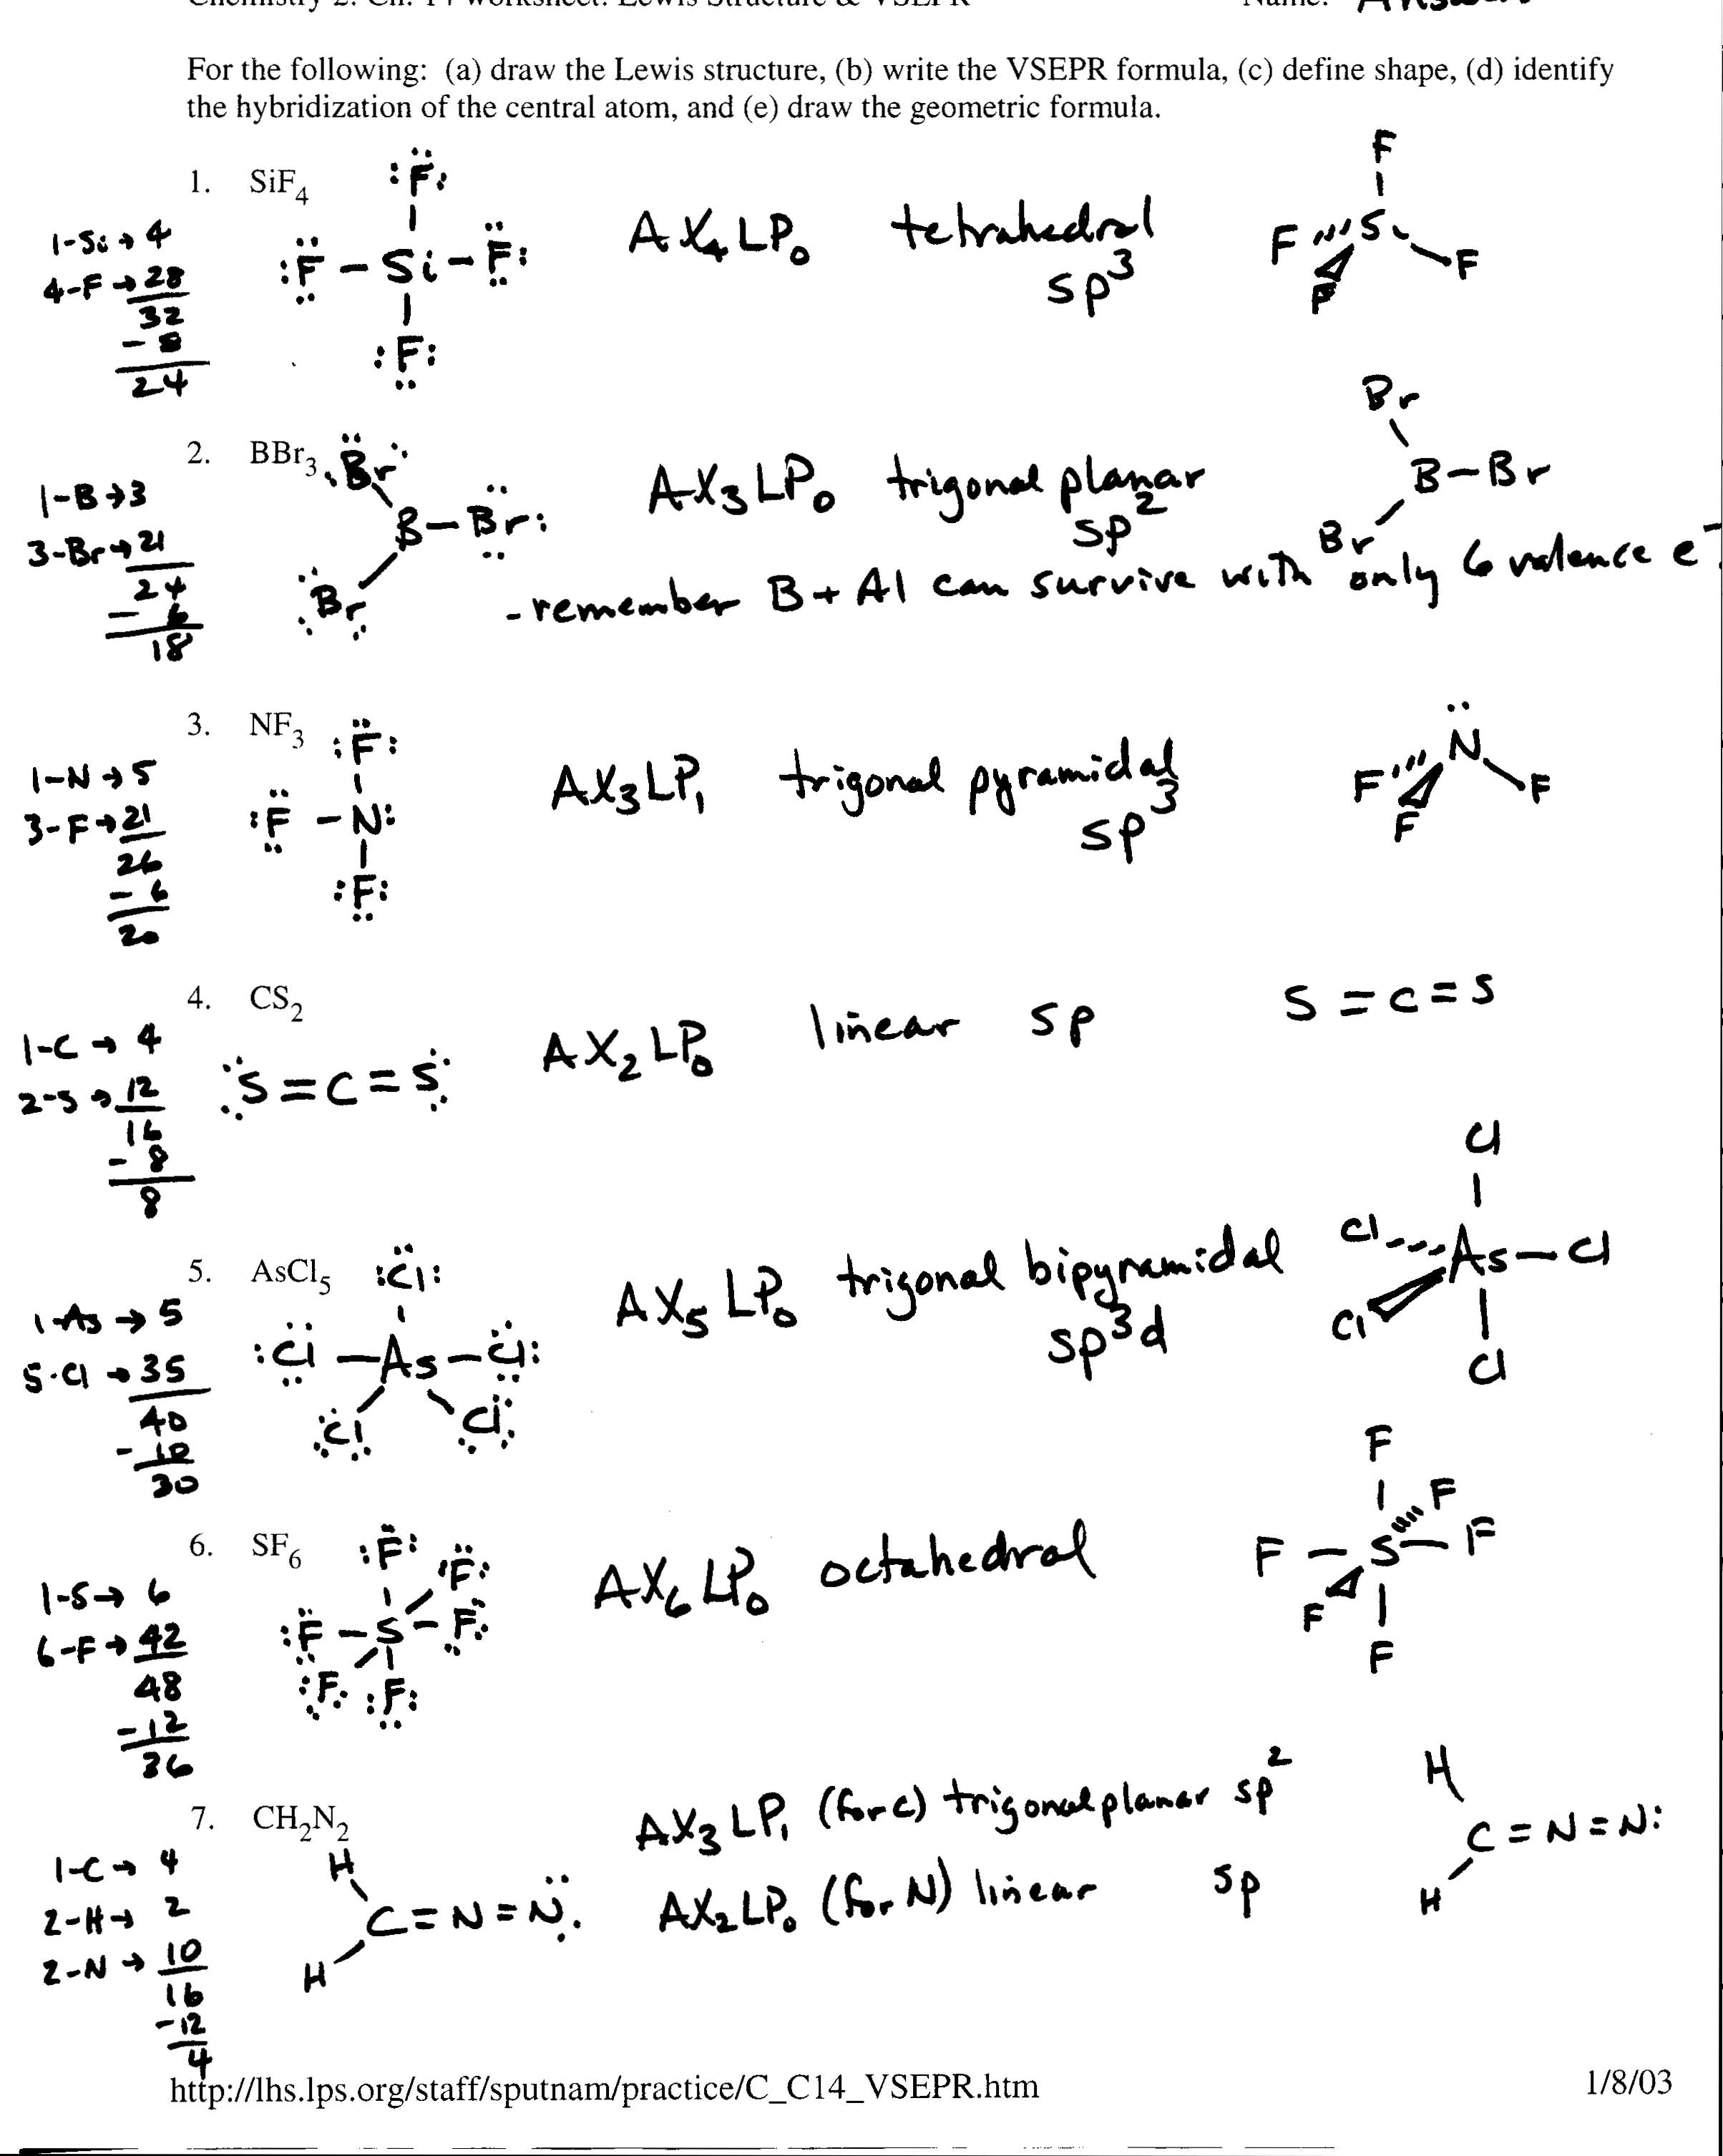 Chemistry 2: Ch. 14 worksheet: Lewis Structure & VSEPR Name: Answers
For the following: (a) draw the Lewis structure, (b) write the VSEPR formula, (c) define shape, (d) identify
the hybridization of the central atom, and (e) draw the geometric formula.
1. SiF₄
1-Si → 4
4-F → 28
32
- 8
24
:F:
:F - Si - F:
:F:
AX₄LP₀ tetrahedral
sp³
F
F Si F
F
2. BBr₃
1-B → 3
3-Br → 21
24
- 6
18
Br
B - Br:
Br
AX₃LP₀ trigonal planar
sp²
Br
B - Br
Br
- remember B + Al can survive with only 6 valence e⁻.
3. NF₃
1-N → 5
3-F → 21
26
- 6
20
:F:
:F - N:
:F:
AX₃LP₁ trigonal pyramidal
sp³
N
F F
F
4. CS₂
1-C → 4
2-S → 12
16
- 8
8
S = C = S
AX₂LP₀ linear sp
S = C = S
5. AsCl₅
1-As → 5
5-Cl → 35
40
- 10
30
:Cl:
:Cl - As - Cl:
Cl Cl
AX₅LP₀ trigonal bipyramidal
sp³d
Cl
Cl As - Cl
Cl
Cl
6. SF₆
1-S → 6
6-F → 42
48
- 12
36
:F: F:
:F - S - F:
:F: :F:
AX₆LP₀ octahedral
F
F
F - S - F
F
F
7. CH₂N₂
1-C → 4
2-H → 2
2-N → 10
16
- 12
4
H
C = N = N
H
AX₃LP₁ (for C) trigonal planar sp²
AX₂LP₀ (for N) linear sp
H
C = N = N:
H
http://lhs.lps.org/staff/sputnam/practice/C_C14_VSEPR.htm 1/8/03